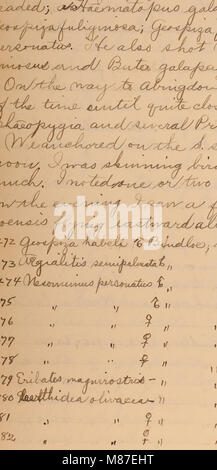 raded; Haematopus gala
eospiza fuliginosa; Geospiza f
ersonatus. He also shot
inosus and Buteo galapa
On the way to Abingdon
of the time until quite clo
haeopygia and several Pr
We anchored on the s.s
noon. I was skinning bir
much. I noted one or two
n the evening I saw a f
oensis flying eastward al
472 Geospiza habeli ♂ Bindloe,
473 Aegialitis semipalmata ♂ "
474 Nesomimus personatus ♂ "
75 " " ♂ "
76 " " ♀ "
77 " " ♀ "
78 " " ♀ "
479 Eribates magnirostris - "
480 Certhidea olivacea - "
81 " " ♀ "
82 " " ♀ "
alamy
www.alamy.com - M87EHT